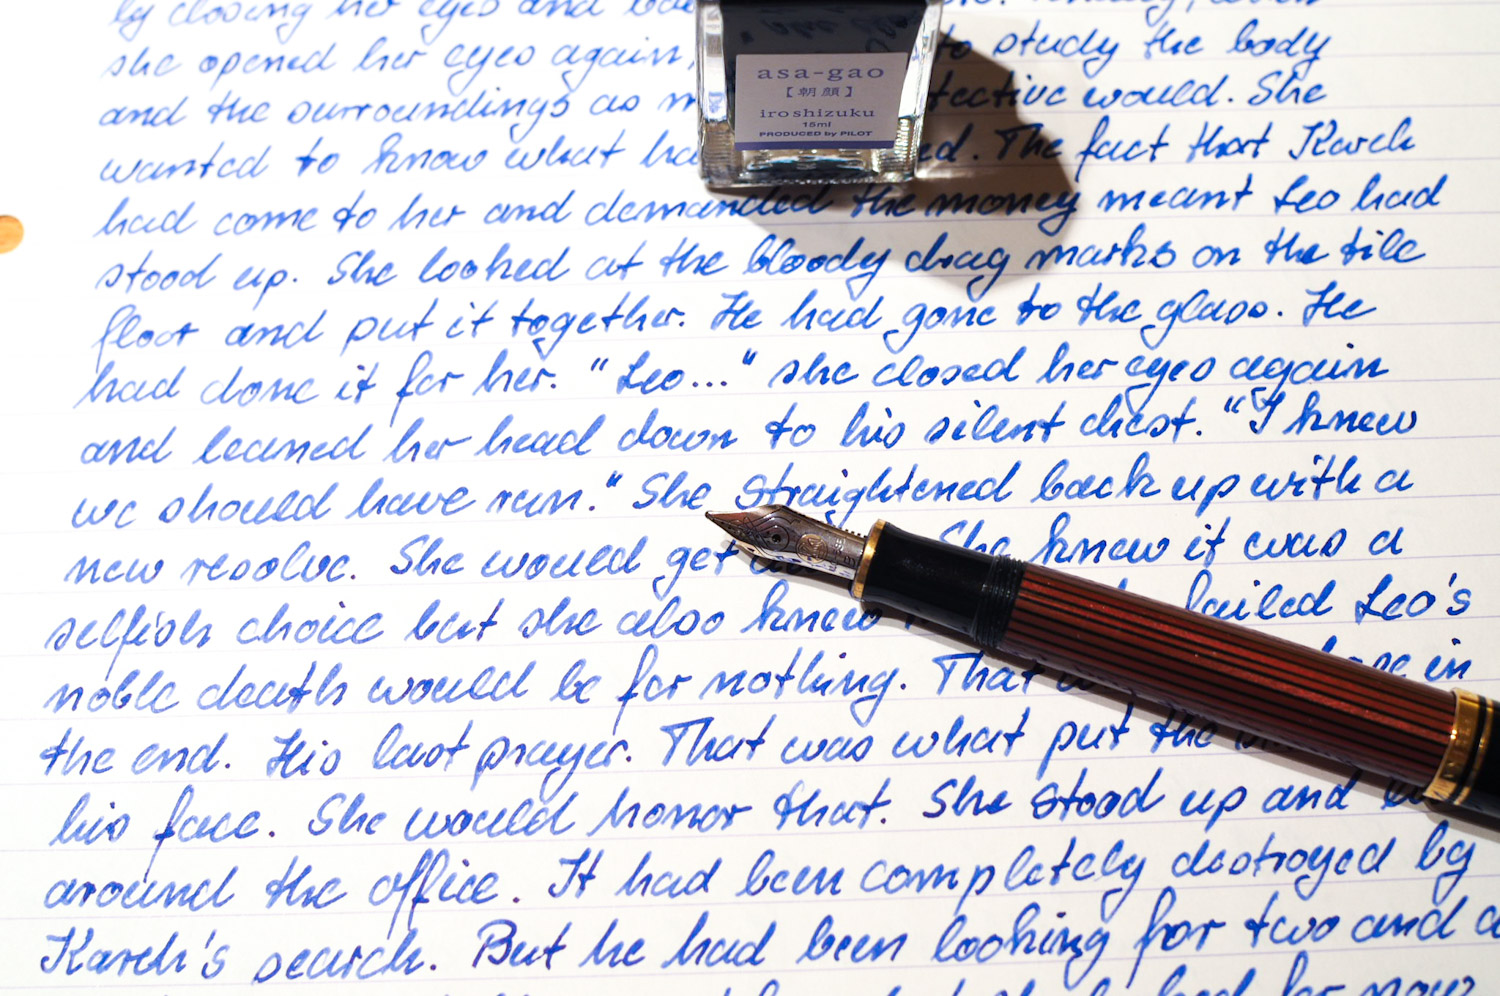 by closing her eyes and
she opened her eyes again, to study the body
and the surroundings as would. She
wanted to know what The fact that Karek
had come to her and demanded the money meant Leo had
stood up. She looked at the bloody drag marks on the tile
floor and put it together. He had gone to the glass. He
had done it for her. "Leo..." she closed her eyes again
and leaned her head down to his silent chest. "I knew
we should have run." She straightened back up with a
new resolve. She would get She knew it was a
selfish choice but she also knew Leo's
noble death would be for nothing. That in
the end. His last prayer. That was what put the
his face. She would honor that. She stood up and
around the office. It had been completely destroyed by
Karek's search. But he had been looking for two and a
for now
asa-gao
【朝顔】
iroshizuku
15ml
PRODUCED by PILOT